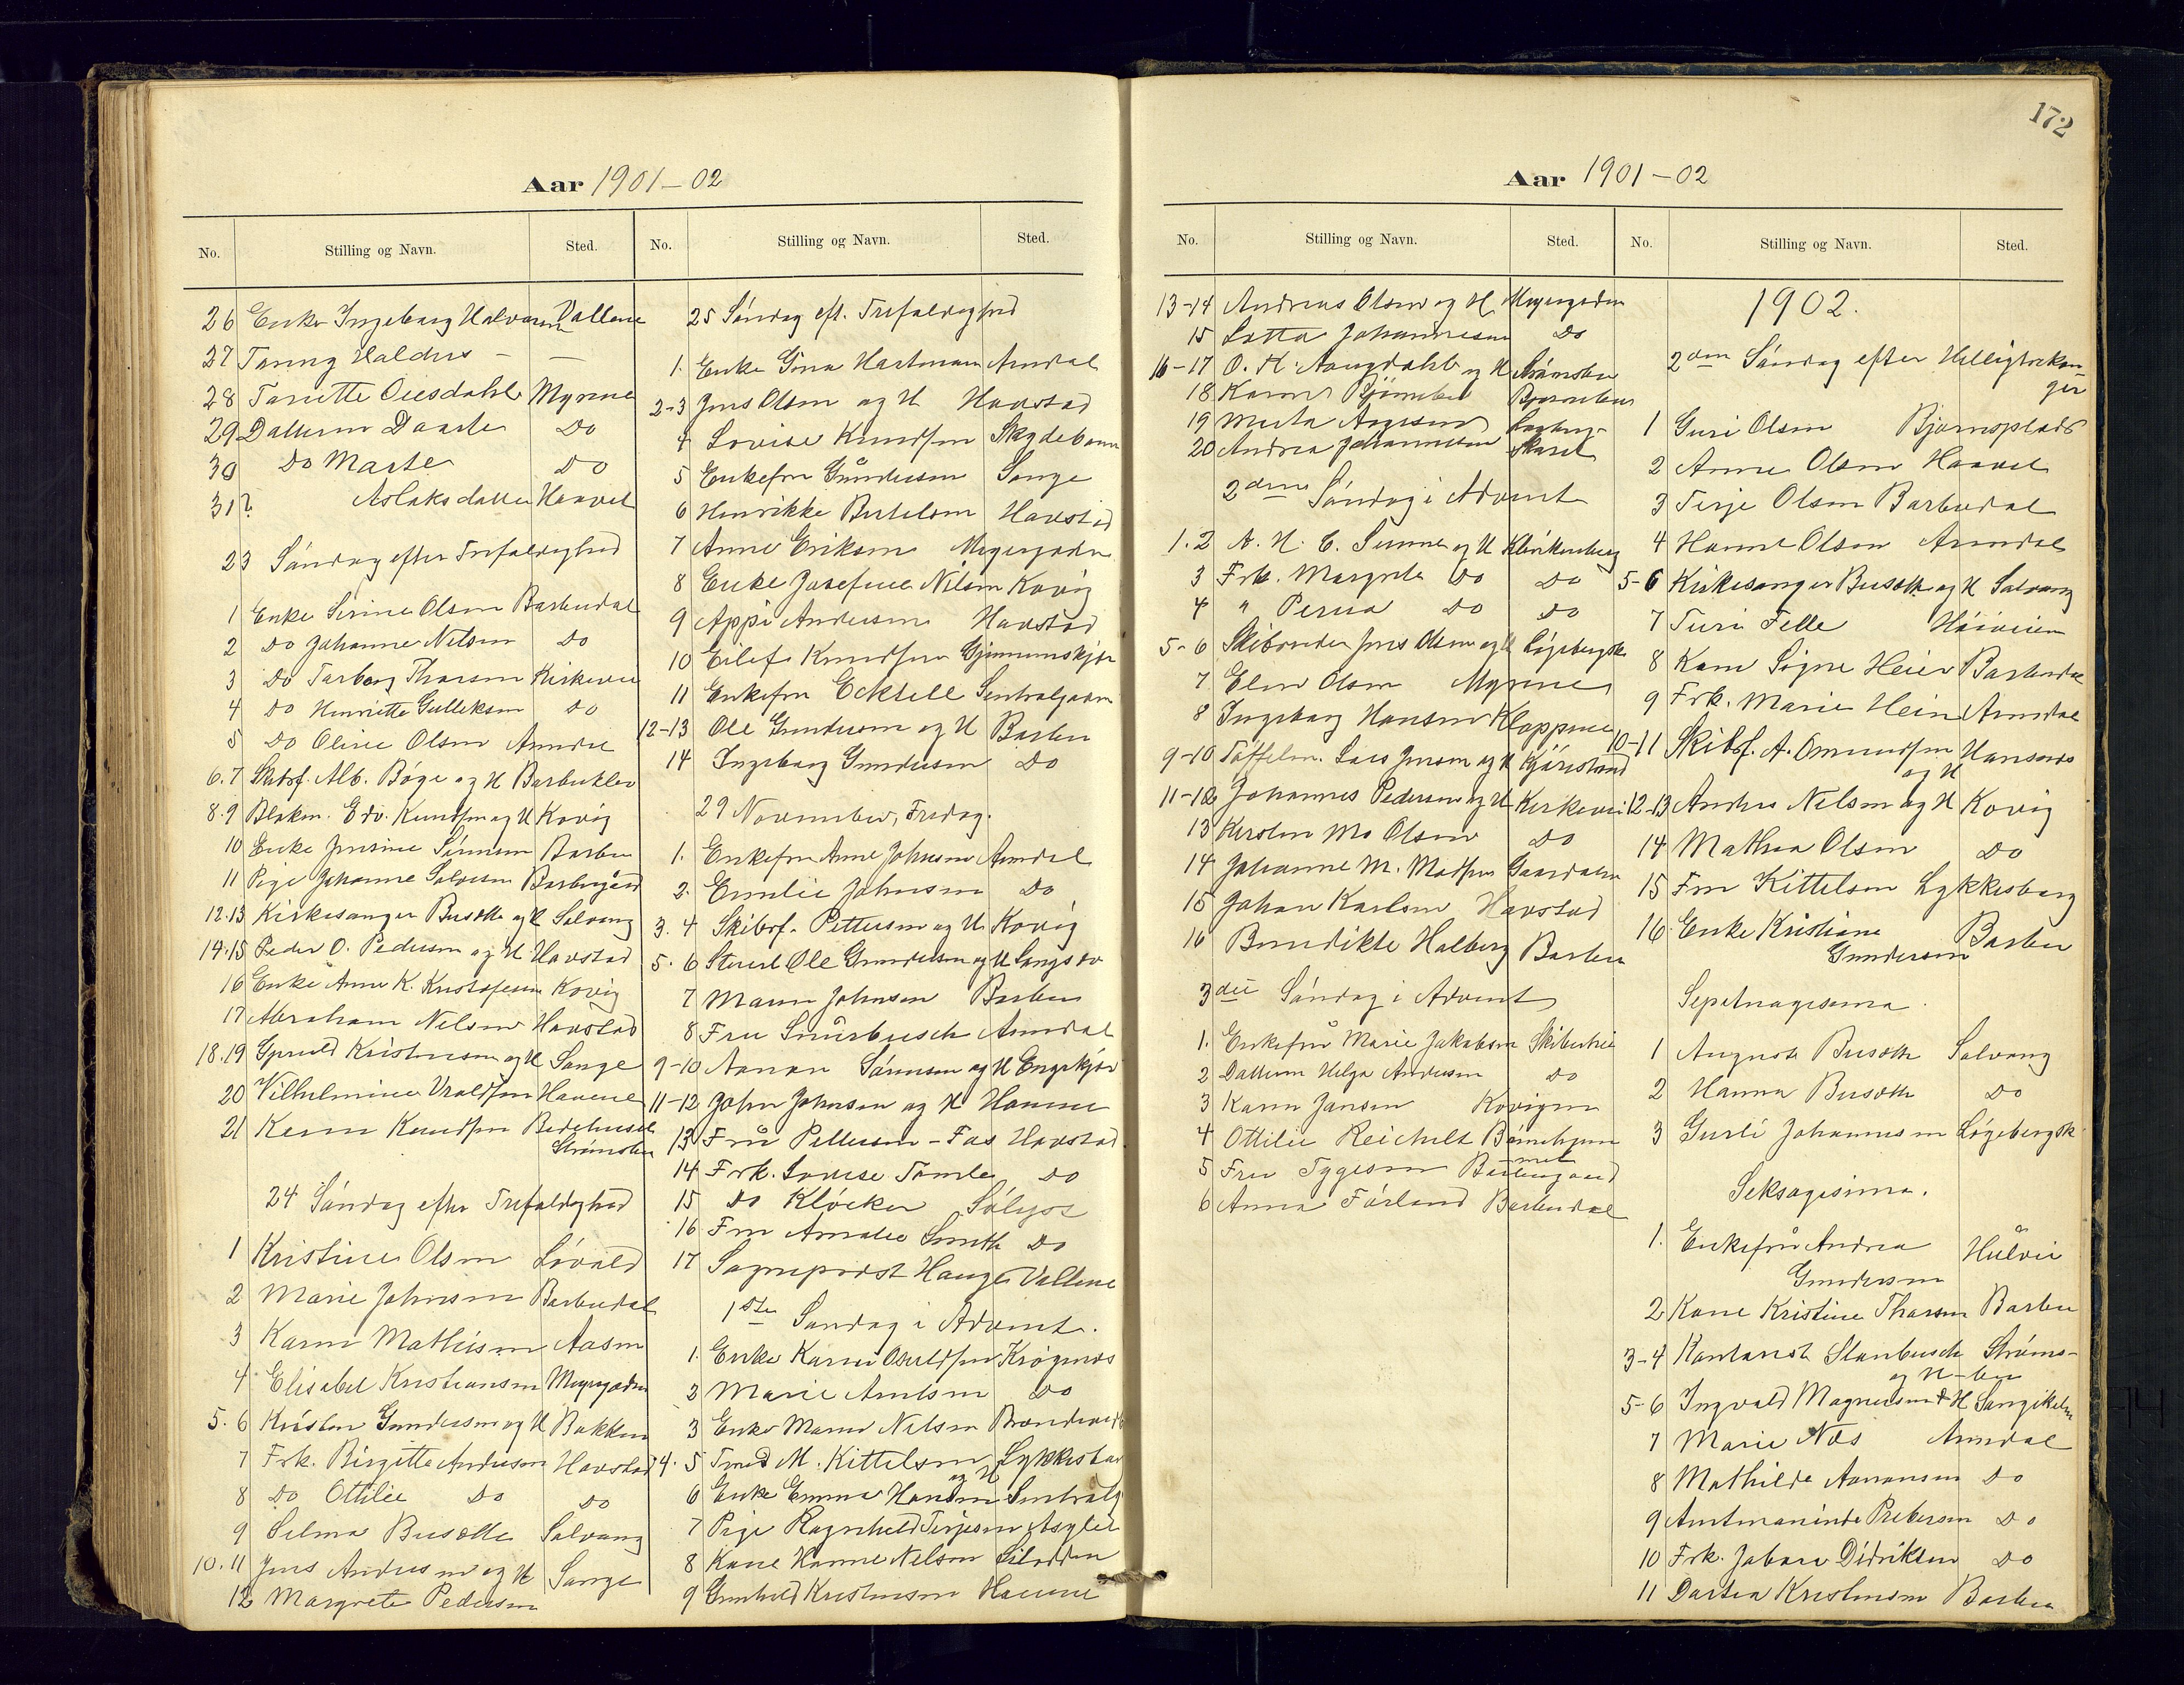 172
Aar 1901-02
No. Stilling og Navn. Sted.
26 Enke Ingeborg Halvorsen Vallene
27 Tanny Halders - —
28 Tariette Myrene
29 Datteren Daarte Do
30 Do Marte Do
31 ? Aslaksdatter Haavet
23 Søndag efter Trefoldighed
1 Enke Serine Olsen Barbudal
2 Do Johanne Nilsen Do
3 Do Tarborg Thorsen Kirkevei
4 Do Henriette Gulleksen Do
5 Do Oline Olsen Arendal
6.7 Skibsf. Alb. Bøge og H Barbuklev
8.9 Blokm. Edv. Knudsen og H Kovig
10 Enke Jensine Sørensen Barbu
11 Pige Johanne Salvesen Barbugaard
12.13 Kirkesanger Busæth og H Solvang
14.15 Peder O. Pedersen og H Havstad
16 Enke Anne K. Kristofersen Kovig
17 Abraham Nilsen Havstad
18.19 Kristensen og H Songe
20 Vilhelmine Havene
21 Karen Knudsen Bedehuset
Strømsbu
24 Søndag efter Trefoldighed
1 Kristine Olsen Løvold
2 Marie Johnsen Barbudal
3 Karen Mathisen Aasen
4 Elisabet Kristiansen Myrgaden
5.6 Kristen Gundersen og H Bakken
7 Frk. Birgitte Andersen Havstad
8 Do Ottilie Do Do
9 Selma Busæth Solvang
10.11 Jens Andersen og H Songe
12 Margrete Pedersen
No. Stilling og Navn. Sted.
25 Søndag eft. Trefoldighed
1. Enke Gina Hartman Arendal
2-3 Jens Olsen og H Havstad
4 Lovise Knudsen Skydebanen
5 Enkefru Gundersen Songe
6 Henrikke Bertelsen Havstad
7 Anne Eriksen Myrgaden
8 Enke Josefine Nilsen Kovig
9 Appi Andersen Havstad
10 Eilef Knudsen
11 Enkefru Ecksell Sentralgaden
12-13 Ole Gundersen og H Barbu
14 Ingeborg Gundersen Do
29 November, Fredag.
1. Enkefru Anne Johnsen Arendal
2. Emilie Johnsen Do
3.4 Skibsf. Pettersen og H Kovig
5.6 Ole Gundersen og H
7 Maren Johnsen Barbu
8 Fru Snurbusch Arendal
9-10 Aanon Sørensen og H Engekjær
11-12 John Johnsen og H Havene
13 Fru Pettersen - Fos Havstad
14 Frk. Lovise Tomle Do
15 Do Kløcker Sølyst
16 Fru Amalie Smith Do
17 Sogneprost Hauge Vallene
1ste Søndag i Advent.
1. Enke Karen Krøgenes
2 Marie Arntsen Do
3 Enke Maren Nilsen
4.5 Tmd M. Kittelsen og H Lykkestad
6 Enke Emma Hansen Sentralg
7 Pige Ragnhild Terjesen Asylet
8 Kone Hanne Nilsen
9 Gunhild Kristensen Havene
Aar 1901-02
No. Stilling og Navn. Sted.
13-14 Andreas Olsen og H. Myrgaden
15 Lotta Johannesen Do
16-17 O. H. Aaugdahl og H Strømsbu
18 Karen Bjørnebo Bjørnebo
19
20 Andrea Johannesen
2den Søndag i Advent
1.2 A. H. C. og H Klinkenberg
3 Frk. Margrete Do Do
4 " Do Do
5-6 Skibsreder Jens Olsen og H Løgebergsk
7 Elen Olsen Myrene
8 Ingeborg Hansen Kloppene
9-10 Lars Jensen og H
11-12 Johannes Pedersen og H Kirkevei
13 Kirsten Ma Olsen Do
14 Johanne M. Madsen
15 Johan Karlsen Havstad
16 Benedikte Halberg Barbu
3die Søndag i Advent
1. Enkefru Marie Jakobsen
2 Datteren Helga Andersen Do
3 Karen Jansen Kovigen
4 Ottilie Reichelt Børnehjem
met
5 Fru Tygesen Barbugaard
6 Anna Førland Barbudal
No. Stilling og Navn. Sted.
1902.
2den Søndag efter Helligtrekon-
ger
1 Guri Olsen Bjørnsplads
2 Anne Olsen Haavet
3 Terje Olsen Barbudal
4 Hanne Olsen Arendal
5-6 Kirkesanger Busæth og H Solvang
7 Turi Felle Høiveien
8 Kone Signe Heier Barbudal
9 Frk. Marie Hein Arendal
10-11 Skibsf. A. Omundsen og H
12-13 Anders Nilsen og H Kovig
14 Mathea Olsen Do
15 Fru Kittelsen Lykkesborg
16. Enke Kristiane
Gundersen Barbu
Sepetuagesima.
1 August Busæth Solvang
2 Hanna Busæth Do
3 Gurli Johannesen Løgebergsk
Seksagesima.
1. Enkefru Andrea
Gundersen
2 Kone Kristine Thorsen Barbu
3-4 Kontorist Stanbusch og H Strøms-
bu
5-6 Ingvald Magnussen & H
7 Marie Næs Arendal
8 Mathilde Aanonsen Do
9 Amtmaninde Prebensen Do
10 Frk. Didriksen Do
11 Dortea Kristensen Barbu